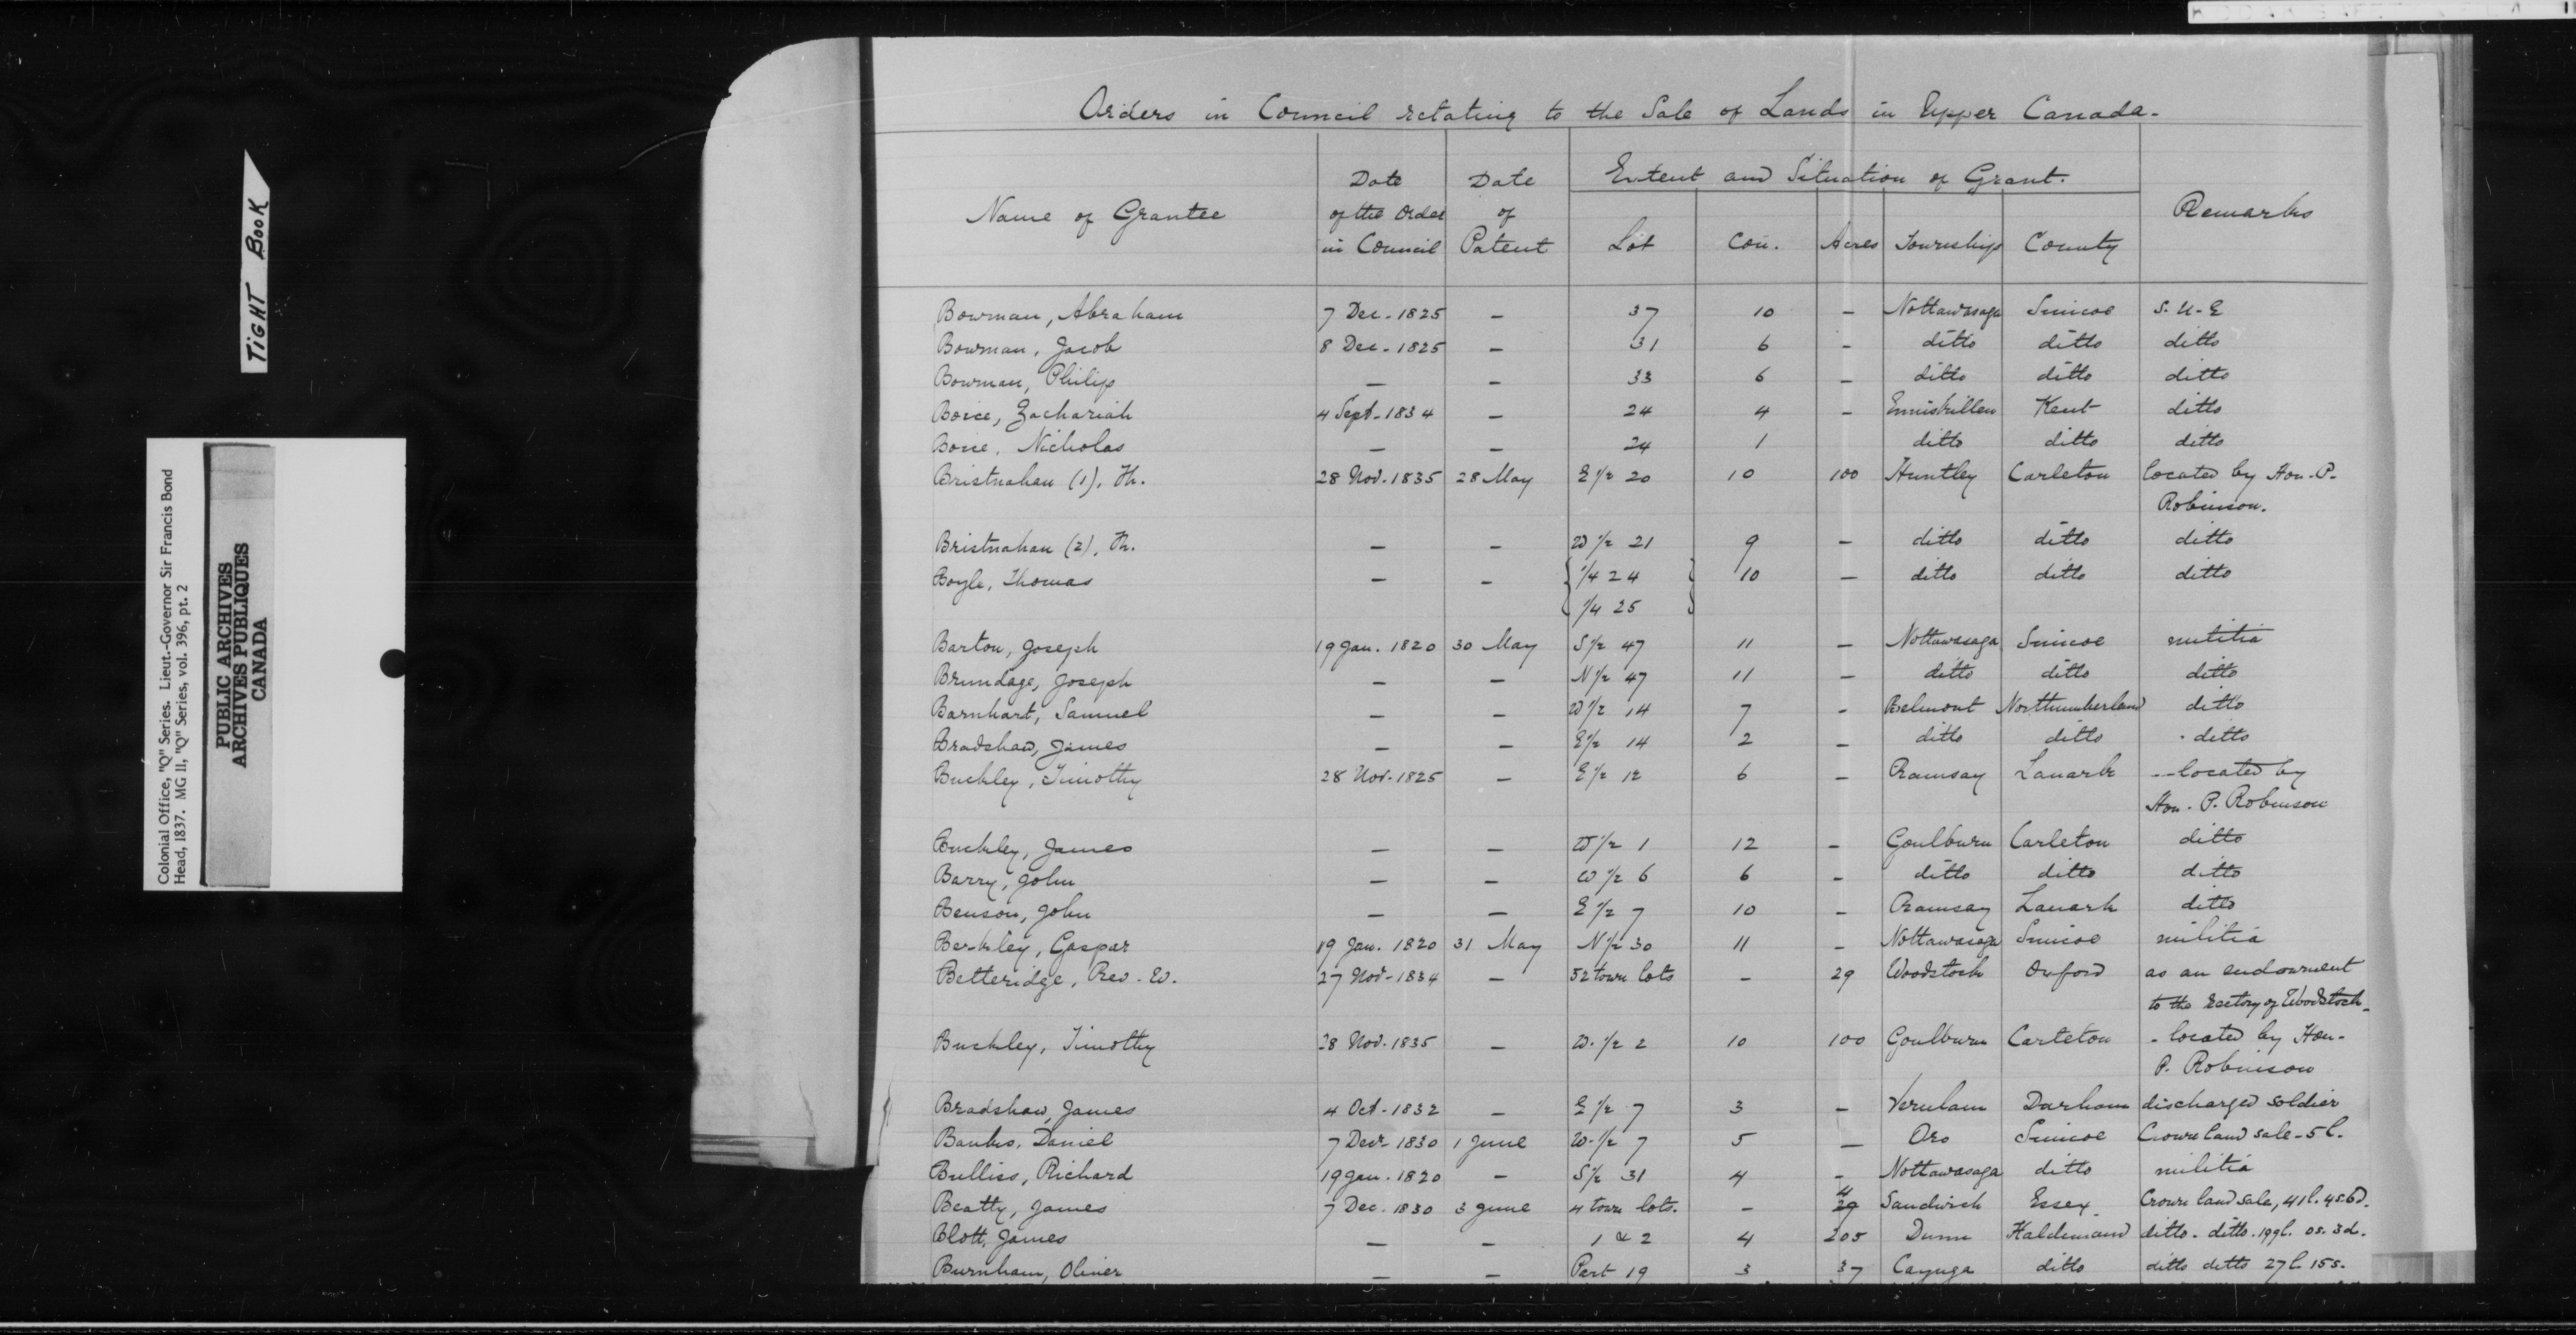 TIGHT BOOK
Colonial Office, "Q" Series. Lieut.-Governor Sir Francis Bond
Head, 1837. MG 11, "Q" Series, vol. 396, pt. 2
PUBLIC ARCHIVES
ARCHIVES PUBLIQUES
CANADA
Orders in Council relating to the Sale of Lands in Upper Canada.
Name of Grantee
Date of the Order in Council
Date of Patent
Extent and Situation of Grant.
Lot Con. Acres Township County
Remarks
Bowman, Abraham 7 Dec. 1825 — 37 10 — Nottawasaga Simcoe S. U. E
Bowman, Jacob 8 Dec. 1825 — 31 6 — ditto ditto ditto
Bowman, Philip — — 33 6 — ditto ditto ditto
Boice, Zachariah 4 Sept. 1834 — 24 4 — Enniskillen Kent ditto
Boice, Nicholas — — 24 1 ditto ditto ditto
Bristnahan (1), Th. 28 Nov. 1835 28 May E 1/2 20 10 100 Huntley Carleton located by Hon. P.
Robinson.
Bristnahan (2), Th. — — W 1/2 21 9 — ditto ditto ditto
Boyle, Thomas — — { 1/4 24 } 10 — ditto ditto ditto
{ 1/4 25 }
Barton, Joseph 19 Jan. 1820 30 May S 1/2 47 11 — Nottawasaga Simcoe militia
Brundage, Joseph — — N 1/2 47 11 — ditto ditto ditto
Barnhart, Samuel — — W 1/2 14 7 - Belmont Northumberland ditto
Bradshaw, James — — E 1/2 14 2 — ditto ditto ditto
Buckley, Timothy 28 Nov. 1825 — E 1/2 12 6 — Ramsay Lanark -- located by
Hon. P. Robinson
Buckley, James — — W 1/2 1 12 — Goulburn Carleton ditto
Barry, John — — W 1/2 6 6 — ditto ditto ditto
Benson, John — — E 1/2 7 10 — Ramsay Lanark ditto
Berkley, Gaspar 19 Jan. 1820 31 May N 1/2 30 11 — Nottawasaga Simcoe militia
Betteridge, Rev. W. 27 Nov. 1834 — 52 town lots — 29 Woodstock Oxford as an endowment
to the Rectory of Woodstock -
Buckley, Timothy 28 Nov. 1835 — W. 1/2 2 10 100 Goulburn Carleton - located by Hon.
P. Robinson
Bradshaw, James 4 Oct. 1832 — E 1/2 7 3 — Verulam Durham discharged soldier
Banks, Daniel 7 Decr 1830 1 June W. 1/2 7 5 — Oro Simcoe Crown land sale - 5 l.
Bulliss, Richard 19 Jan. 1820 — S 1/2 31 4 - Nottawasaga ditto militia
Beatty, James 7 Dec. 1830 3 June 4 town lots. — 4 Sandwich Essex Crown land sale, 41 l. 4s. 6d.
Blott, James — — 1 & 2 4 205 Dunn Haldimand ditto. ditto. 199 l. 0s. 3d.
Burnham, Oliver — — Part 19 3 37 Cayuga ditto ditto ditto 27 l. 15s.